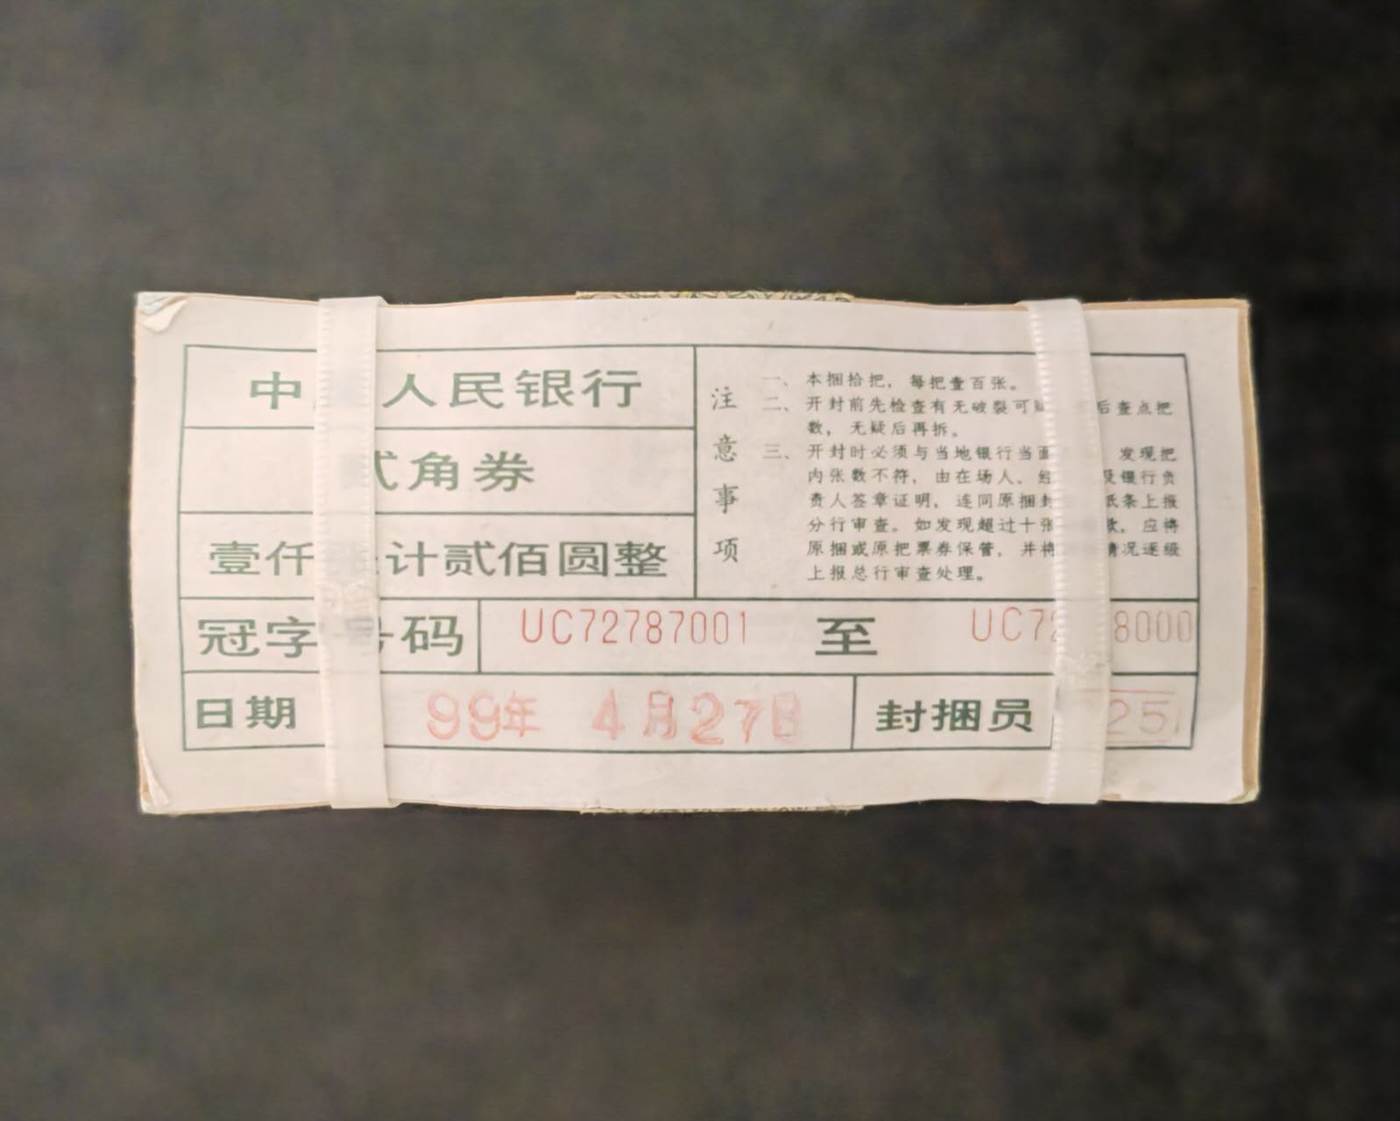 中 人民银行
贰角券
壹仟 计贰佰圆整
注意事项
一、本捆拾把，每把壹百张。
二、开封前先检查有无破裂可 后查点把
数，无疑后再拆。
三、开封时必须与当地银行当面 发现把
内张数不符，由在场人、经 及银行负
责人签章证明，连同原捆封 纸条上报
分行审查。如发现超过十张 款，应将
原捆或原把票券保管，并将 情况逐级
上报总行审查处理。
冠字号码 UC72787001 至 UC72 8000
日期 99年 4月27日 封捆员 25